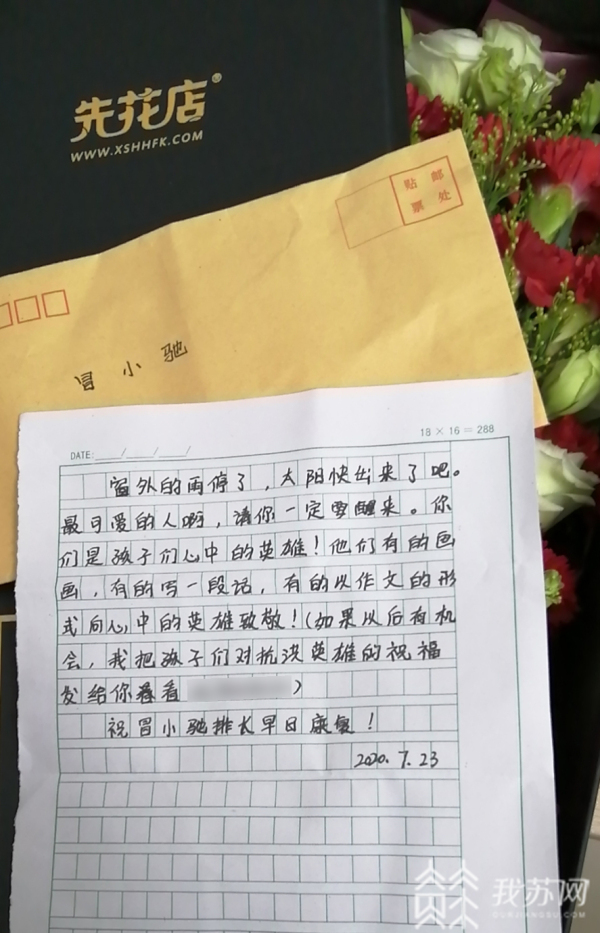 先花店®
WWW.XSHHFK.COM
贴 邮
票 处
冒小驰
18 × 16 = 288
DATE: ____/____/____
窗外的雨停了，太阳快出来了吧。
最可爱的人啊，请你一定要醒来。你
们是孩子们心中的英雄！他们有的画
画，有的写一段话，有的以作文的形
式向心中的英雄致敬！（如果以后有机
会，我把孩子们对抗洪英雄的祝福
发给你看看 ）
祝冒小驰排长早日康复！
2020.7.23
我苏网
OURJIANGSU.COM